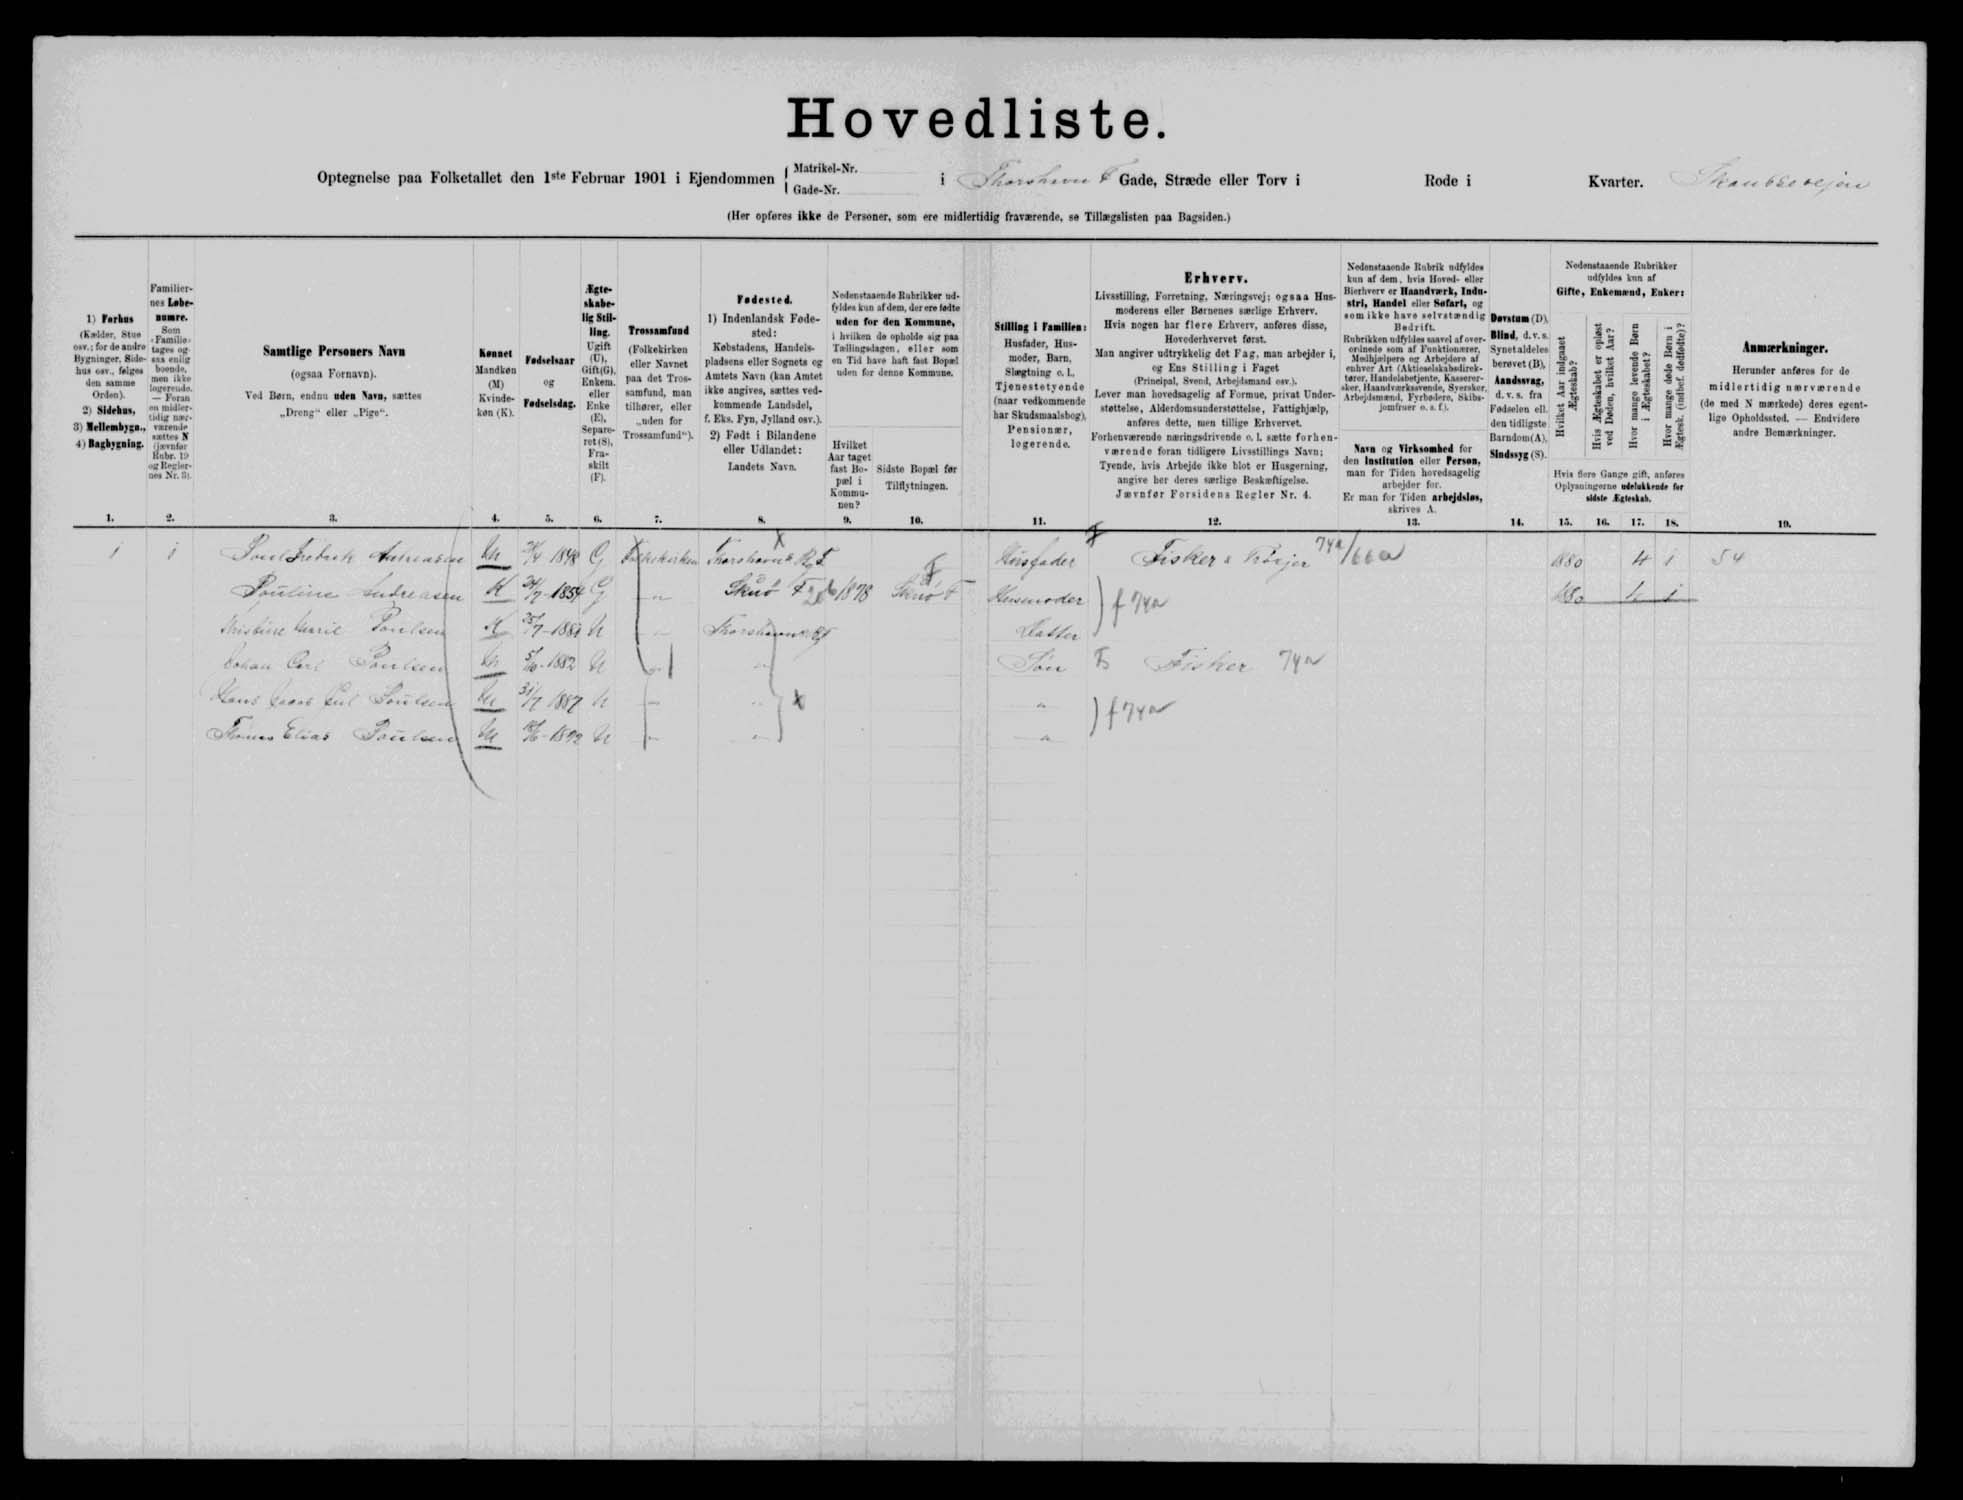 Hovedliste.
Optegnelse paa Folketallet den 1ste Februar 1901 i Ejendommen { Matrikel-Nr. Gade-Nr. i Thorshavn F Gade, Stræde eller Torv i Rode i Kvarter.
(Her opføres ikke de Personer, som ere midlertidig fraværende, se Tillægslisten paa Bagsiden.)
1) Forhus (Kælder, Stue osv.; for de andre Bygninger, Sidehus osv., følges den samme Orden). 2) Sidehus, 3) Mellembygn., 4) Bagbygning.
Familiernes Løbenumre. Som »Familie« tages ogsaa enlig boende, men ikke logerende. — Foran en midlertidig nærværende sættes N (jævnfør Rubr. 19 og Reglernes Nr. 3).
Samtlige Personers Navn (ogsaa Fornavn). Ved Børn, endnu uden Navn, sættes „Dreng“ eller „Pige“.
Kønnet Mandkøn (M) Kvindekøn (K).
Fødselsaar og Fødselsdag.
Ægteskabelig Stilling. Ugift (U), Gift (G), Enkem. eller Enke (E), Separeret (S), Fraskilt (F).
Trossamfund (Folkekirken eller Navnet paa det Trossamfund, man tilhører, eller „uden for Trossamfund“).
Fødested. 1) Indenlandsk Fødested: Købstadens, Handelspladsens eller Sognets og Amtets Navn (kan Amtet ikke angives, sættes vedkommende Landsdel, f. Eks. Fyn, Jylland osv.). 2) Født i Bilandene eller Udlandet: Landets Navn.
Nedenstaaende Rubrikker udfyldes kun af dem, der ere fødte uden for den Kommune, i hvilken de opholde sig paa Tællingsdagen, eller som en Tid have haft fast Bopæl uden for denne Kommune.
Hvilket Aar taget fast Bopæl i Kommunen?
Sidste Bopæl før Tilflytningen.
Stilling i Familien: Husfader, Husmoder, Barn, Slægtning o. l., Tjenestetyende (naar vedkommende har Skudsmaalsbog), Pensionær, logerende.
Erhverv.
Livsstilling, Forretning, Næringsvej; ogsaa Husmoderens eller Børnenes særlige Erhverv.
Hvis nogen har flere Erhverv, anføres disse, Hovederhvervet først.
Man angiver udtrykkelig det Fag, man arbejder i, og Ens Stilling i Faget (Principal, Svend, Arbejdsmand osv.).
Lever man hovedsagelig af Formue, privat Understøttelse, Alderdomsunderstøttelse, Fattighjælp, anføres dette, men tillige Erhvervet.
Forhenværende næringsdrivende o. l. sætte forhenværende foran tidligere Livsstillings Navn;
Tyende, hvis Arbejde ikke blot er Husgerning, angive her deres særlige Beskæftigelse.
Jævnfør Forsidens Regler Nr. 4.
Nedenstaaende Rubrik udfyldes kun af dem, hvis Hoved- eller Bierhverv er Haandværk, Industri, Handel eller Søfart, og som ikke have selvstændig Bedrift.
Rubrikken udfyldes saavel af overordnede som af Funktionærer, Medhjælpere og Arbejdere af enhver Art (Aktieselskabsdirektører, Handelsbetjente, Kasserersker, Haandværkssvende, Syersker, Arbejdsmænd, Fyrbødere, Skibsjomfruer o. s. f.).
Navn og Virksomhed for den Institution eller Person, man for Tiden hovedsagelig arbejder for. Er man for Tiden arbejdsløs, skrives A.
Døvstum (D), Blind, d. v. s. Synet aldeles berøvet (B), Aandssvag, d. v. s. fra Fødselen ell. den tidligste Barndom (A), Sindssyg (S).
Nedenstaaende Rubrikker udfyldes kun af Gifte, Enkemænd, Enker:
Hvilket Aar indgaaet Ægteskab?
Hvis Ægteskabet er opløst ved Døden, hvilket Aar?
Hvor mange levende Børn i Ægteskabet?
Hvor mange døde Børn i Ægtesk. (indbef. dødfødte)?
Hvis flere Gange gift, anføres Oplysningerne udelukkende for sidste Ægteskab.
Anmærkninger. Herunder anføres for de midlertidig nærværende (de med N mærkede) deres egentlige Opholdssted. — Endvidere andre Bemærkninger.
1. 2. 3. 4. 5. 6. 7. 8. 9. 10. 11. 12. 13. 14. 15. 16. 17. 18. 19.
1 1 Poul Andreasen M 1848 G Folkekirken Thorshavn F Husfader Fisker & 74a/66a 1880 4 1 54
Pouline Andreasen K 1854 G " Skuø F 1878 Skuø F Husmoder f 74a 1880 4 1
Poulsen K U " Thorshavn Datter
Johan Carl Poulsen M 1882 U " " Søn Fisker 74a
Hans Poulsen M 1887 U " " " f 74a
Elias Poulsen M U " " "